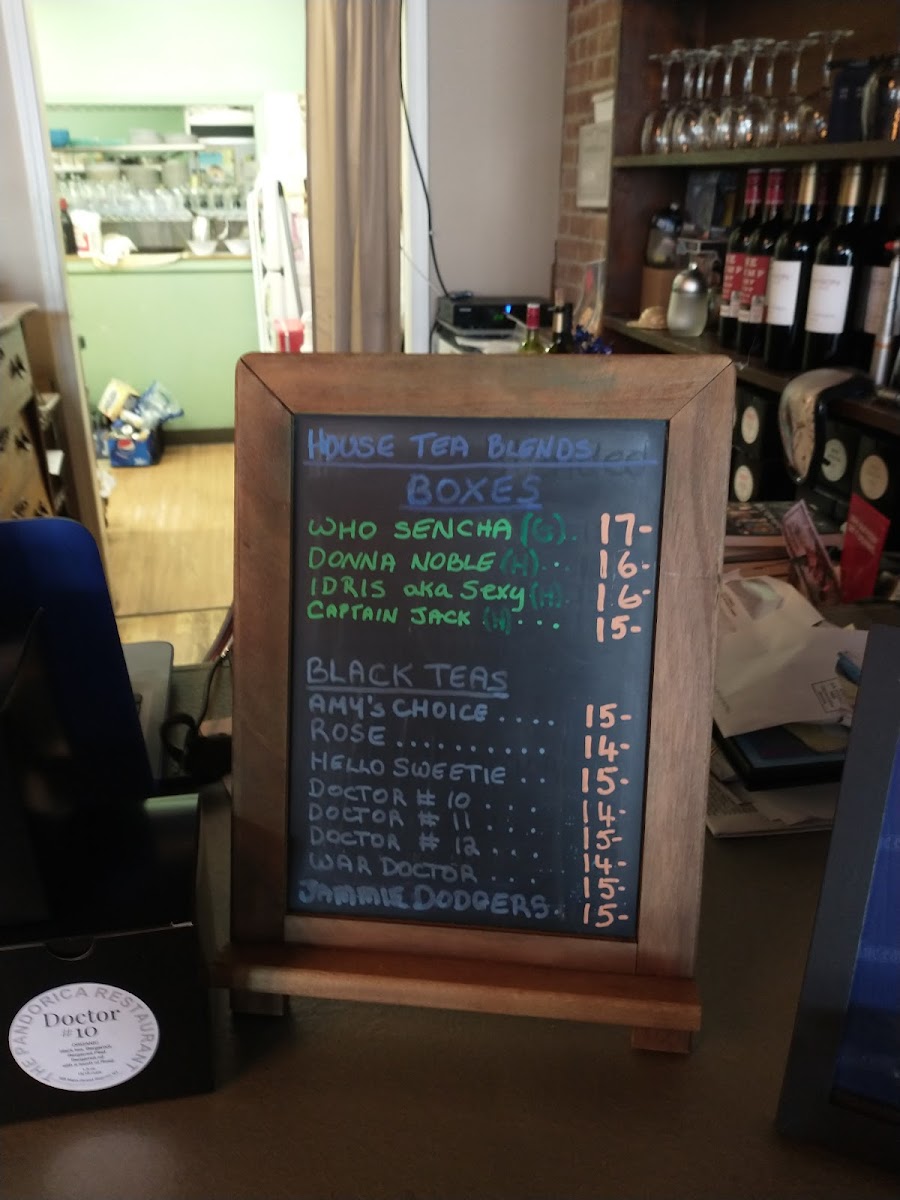 HOUSE TEA BLENDS
BOXES
WHO SENCHA (G). 17-
DONNA NOBLE (H)... 16-
IDRIS aka Sexy (H). 16-
CAPTAIN JACK (H)... 15-
BLACK TEAS
AMY'S CHOICE .... 15-
ROSE .......... 14-
HELLO SWEETIE .. 15-
DOCTOR # 10 .... 14-
DOCTOR # 11 .... 15-
DOCTOR # 12 ... 14-
WAR DOCTOR .... 15-
JAMMIE DODGERS. 15-
THE PANDORICA RESTAURANT
Doctor
#10